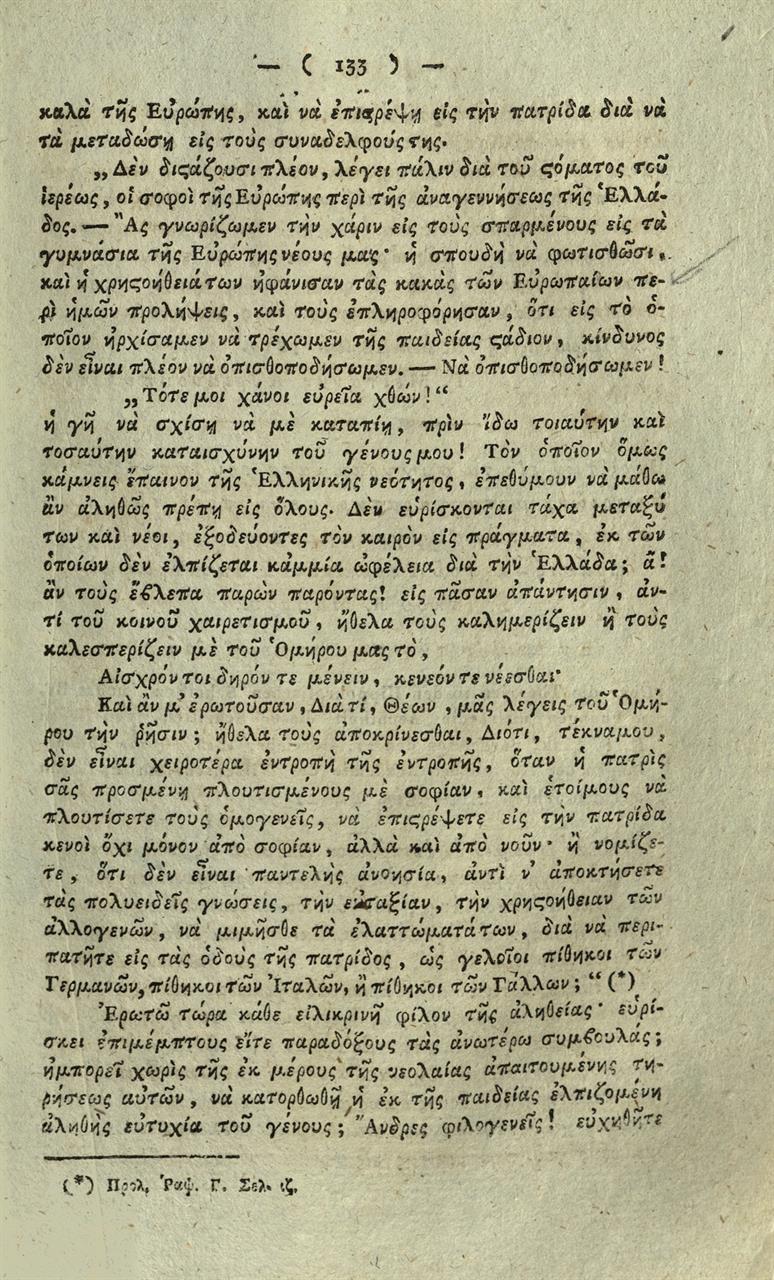 — ( 133 ) —
καλὰ τῆς Εὐρώπης, καὶ νὰ ἐπιϛρέψῃ εἰς τὴν πατρίδα διὰ νὰ
τὰ μεταδώσῃ εἰς τοὺς συναδελφούς της.
„Δὲν διϛάζουσι πλέον, λέγει πάλιν διὰ τοῦ ϛόματος τοῦ
ἱερέως, οἱ σοφοὶ τῆς Εὐρώπης περὶ τῆς ἀναγεννήσεως τῆς Ἑλλά-
δος. — Ἂς γνωρίζωμεν τὴν χάριν εἰς τοὺς σπαρμένους εἰς τὰ
γυμνάσια τῆς Εὐρώπης νέους μας· ἡ σπουδὴ νὰ φωτισθῶσι,
καὶ ἡ χρηϛοήθειά των ἠφάνισαν τὰς κακὰς τῶν Εὐρωπαίων πε-
ρὶ ἡμῶν προλήψεις, καὶ τοὺς ἐπληροφόρησαν, ὅτι εἰς τὸ ὁ-
ποῖον ἠρχίσαμεν νὰ τρέχωμεν τῆς παιδείας ϛάδιον, κίνδυνος
δὲν εἶναι πλέον νὰ ὀπισθοποδήσωμεν. — Νὰ ὀπισθοποδήσωμεν!
„Τότε μοι χάνοι εὐρεῖα χθών!“
ἡ γῆ νὰ σχίσῃ νὰ μὲ καταπίῃ, πρὶν ἴδω τοιαύτην καὶ
τοσαύτην καταισχύνην τοῦ γένους μου! Τὸν ὁποῖον ὅμως
κάμνεις ἔπαινον τῆς Ἑλληνικῆς νεότητος, ἐπεθύμουν νὰ μάθω
ἂν ἀληθῶς πρέπῃ εἰς ὅλους. Δὲν εὑρίσκονται τάχα μεταξύ
των καὶ νέοι, ἐξοδεύοντες τὸν καιρὸν εἰς πράγματα, ἐκ τῶν
ὁποίων δὲν ἐλπίζεται κἀμμία ὠφέλεια διὰ τὴν Ἑλλάδα; ἆ!
ἂν τοὺς ἔϐλεπα παρὼν παρόντας! εἰς πᾶσαν ἀπάντησιν, ἀν-
τί τοῦ κοινοῦ χαιρετισμοῦ, ἤθελα τοὺς καλημερίζειν ἢ τοὺς
καλεσπερίζειν μὲ τοῦ Ὁμήρου μας τὸ,
Αἰσχρόν τοι δηρόν τε μένειν, κενεόν τε νέεσθαι·
Καὶ ἂν μ’ ἐρωτοῦσαν, Διὰ τί, Θέων, μᾶς λέγεις τοῦ Ὁμή-
ρου τὴν ῥῆσιν; ἤθελα τοὺς ἀποκρίνεσθαι, Διότι, τέκνα μου,
δὲν εἶναι χειροτέρα ἐντροπὴ τῆς ἐντροπῆς, ὅταν ἡ πατρὶς
σᾶς προσμένῃ πλουτισμένους μὲ σοφίαν, καὶ ἑτοίμους νὰ
πλουτίσετε τοὺς ὁμογενεῖς, νὰ ἐπιϛρέψετε εἰς τὴν πατρίδα
κενοὶ ὄχι μόνον ἀπὸ σοφίαν, ἀλλὰ καὶ ἀπὸ νοῦν· ἢ νομίζε-
τε, ὅτι δὲν εἶναι παντελὴς ἀνοησία, ἀντὶ ν’ ἀποκτήσετε
τὰς πολυειδεῖς γνώσεις, τὴν εὐταξίαν, τὴν χρηϛοήθειαν τῶν
ἀλλογενῶν, νὰ μιμῆσθε τὰ ἐλαττώματά των, διὰ νὰ περι-
πατῆτε εἰς τὰς ὁδοὺς τῆς πατρίδος, ὡς γελοῖοι πίθηκοι τῶν
Γερμανῶν, πίθηκοι τῶν Ἰταλῶν, ἢ πίθηκοι τῶν Γάλλων;“ (*)
Ἐρωτῶ τώρα κάθε εἰλικρινῆ φίλον τῆς ἀληθείας· εὑρί-
σκει ἐπιμέμπτους εἴτε παραδόξους τὰς ἀνωτέρω συμϐουλάς;
ἠμπορεῖ χωρὶς τῆς ἐκ μέρους τῆς νεολαίας ἀπαιτουμένης τη-
ρήσεως αὐτῶν, νὰ κατορθωθῇ ἡ ἐκ τῆς παιδείας ἐλπιζομένη
ἀληθὴς εὐτυχία τοῦ γένους; Ἄνδρες φιλογενεῖς! εὐχηθῆτε
(*) Προλ. Ῥαψ. Γ. Σελ. ιζ.